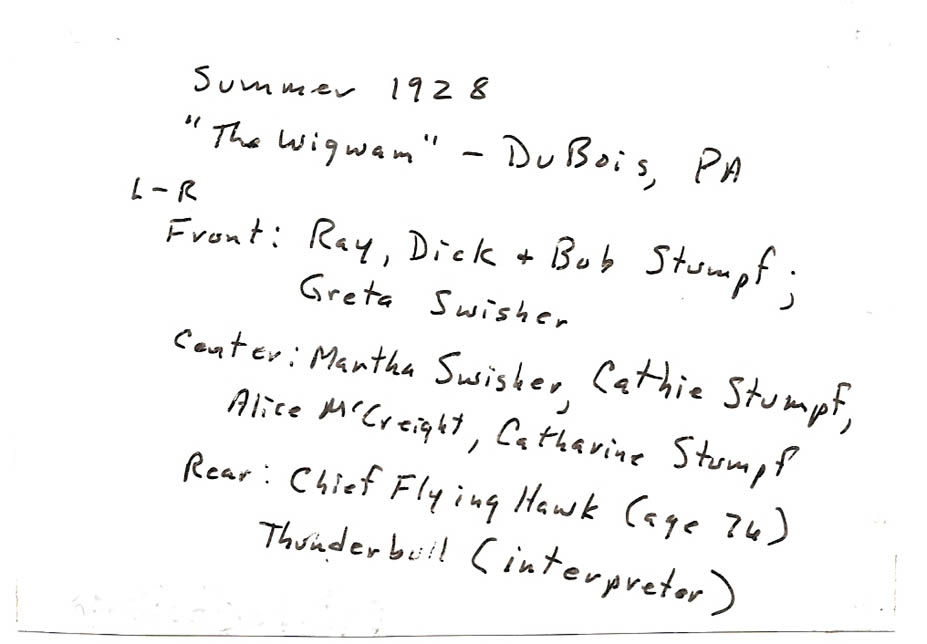 Summer 1928
"The Wigwam" - DuBois, PA
L-R
Front: Ray, Dick + Bob Stumpf;
Greta Swisher
Center: Martha Swisher, Cathie Stumpf,
Alice McCreight, Catharine Stumpf
Rear: Chief Flying Hawk (age 76)
Thunderbull (interpretor)